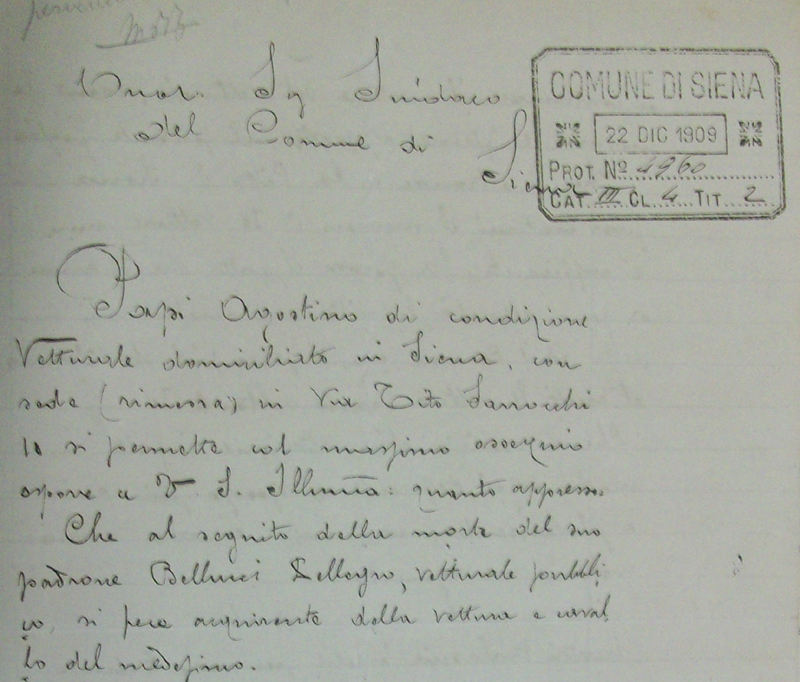 Onor. Sig Sindaco
del Comune di
Siena
COMUNE DI SIENA
22 DIC 1909
PROT. Nº 4960
CAT. III CL. 4 TIT. 2
Papi Agostino di condizione
Vetturale domiciliato in Siena, con
sede (rimessa) in Via Tito Sarrocchi
10 si permette col massimo ossequio
espore a V. S. Illuma: quanto appresso.
Che al seguito della morte del suo
padrone Bellucci Pellegro, vetturale pubbli
co, si fece acquirente della vettura e caval
lo del medesimo.